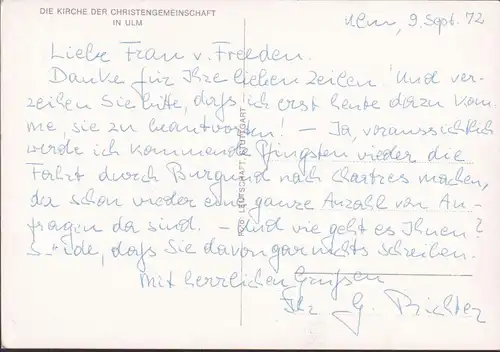 DIE KIRCHE DER CHRISTENGEMEINSCHAFT
IN ULM
Ulm, 9. Sept. 72
Liebe Frau v. Freeden.
Danke für Ihre lieben Zeilen! Und ver-
zeihen Sie bitte, dass ich erst heute dazu kom-
me, sie zu beantworten! – Ja, voraussichtlich
werde ich kommende Pfingsten wieder die
Fahrt durch Burgund nach Chartres machen,
da schon wieder eine ganze Anzahl von An-
fragen da sind. – Und wie geht es Ihnen?
dass Sie davon gar nichts schreiben.
Mit herzlichen Grüssen
Ihr G. Richter
LEUTSCHAFT STUTTGART